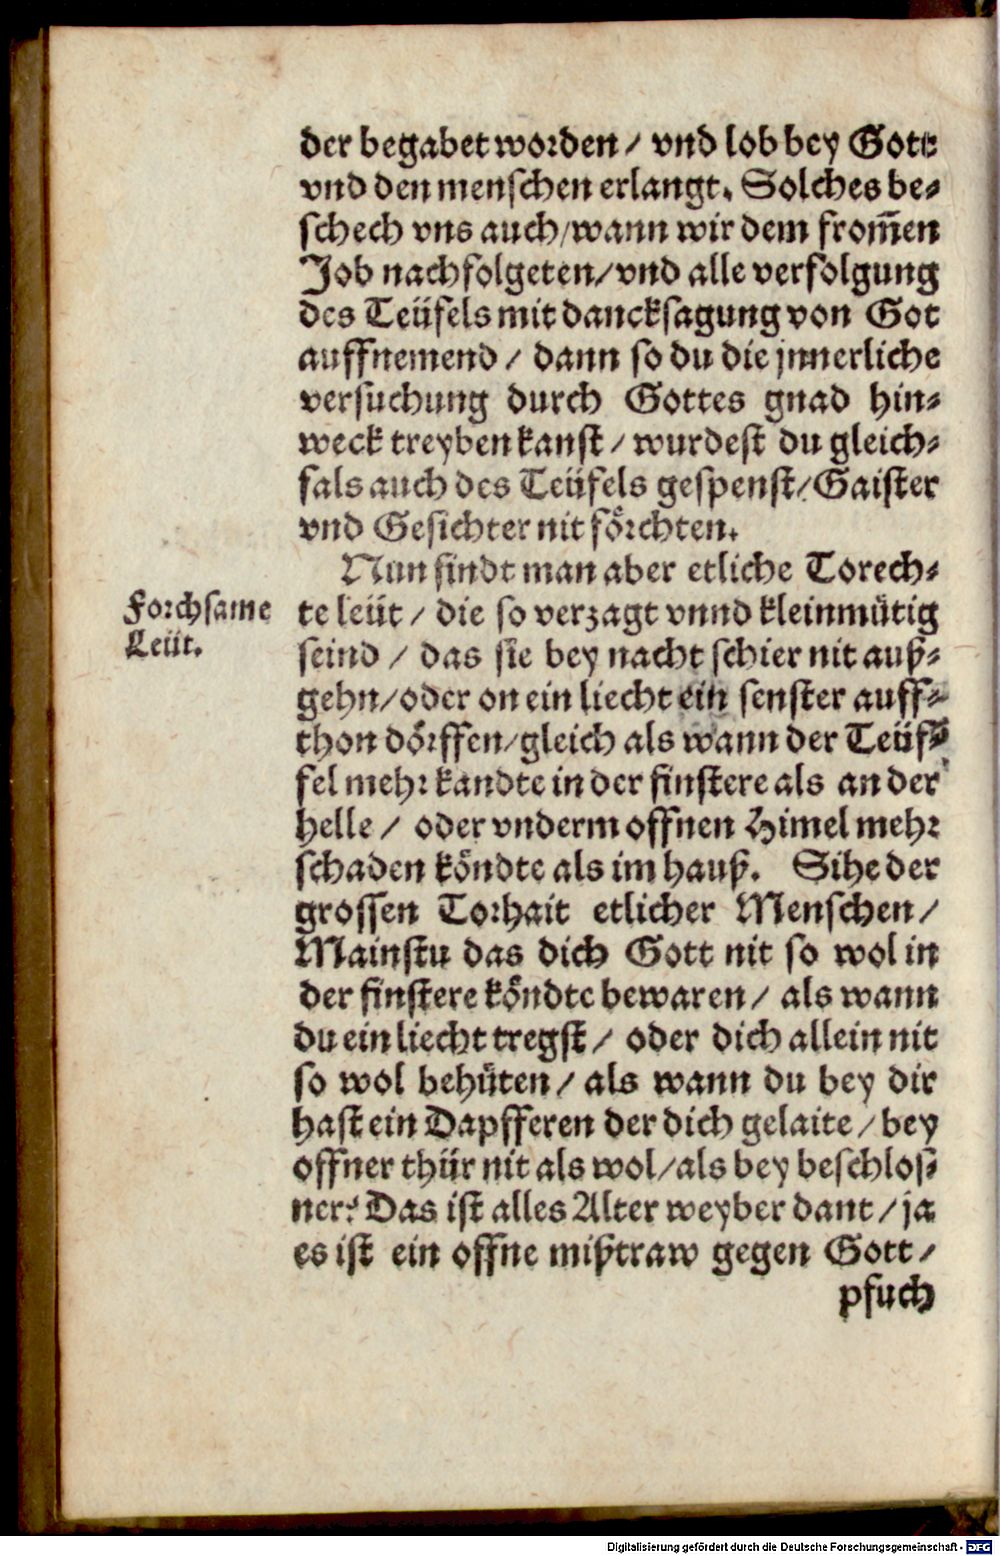 der begabet worden / vnd lob bey Gott
vnd den menschen erlangt. Solches be-
schech vns auch / wann wir dem from̃en
Job nachfolgeten / vnd alle verfolgung
des Teüfels mit dancksagung von Got
auffnemend / dann so du die jnnerliche
versuchung durch Gottes gnad hin-
weck treyben kanst / wurdest du gleich-
fals auch des Teüfels gespenst / Gaister
vnd Gesichter nit förchten.
Nun findt man aber etliche Torech-
Forchsame
Leüt.
te leüt / die so verzagt vnnd kleinmütig
seind / das sie bey nacht schier nit auß-
gehn / oder on ein liecht ein fenster auff-
thon dörffen / gleich als wann der Teüf-
fel mehr kandte in der finstere als an der
helle / oder vnderm offnen Himel mehr
schaden köndte als im hauß. Sihe der
grossen Torhait etlicher Menschen /
Mainstu das dich Gott nit so wol in
der finstere köndte bewaren / als wann
du ein liecht tregst / oder dich allein nit
so wol behüten / als wann du bey dir
hast ein Dapfferen der dich gelaite / bey
offner thür nit als wol / als bey beschlos-
ner? Das ist alles Alter weyber dant / ja
es ist ein offne mißtraw gegen Gott /
pfuch
Digitalisierung gefördert durch die Deutsche Forschungsgemeinschaft - DFG